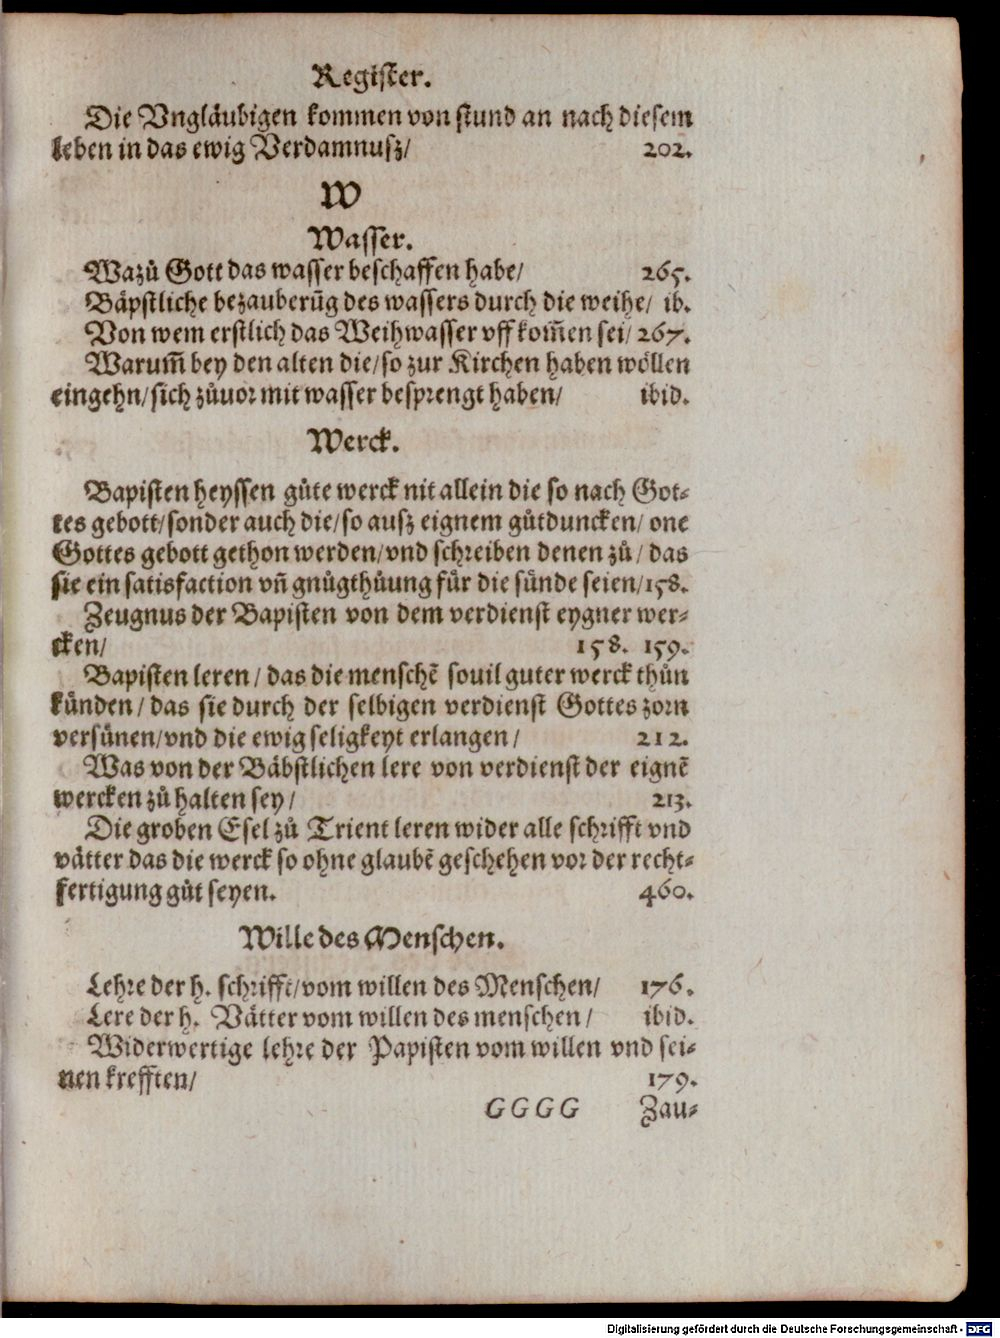 Register.
Die Vngläubigen kommen von stund an nach diesem
leben in das ewig Verdamnusz/ 202.
W
Wasser.
Wazů Gott das wasser beschaffen habe/ 265.
Bäpstliche bezauberūg des wassers durch die weihe/ ib.
Von wem erstlich das Weihwasser vff kom̄en sei/ 267.
Warum̄ bey den alten die/ so zur Kirchen haben wöllen
eingehn/ sich zůuor mit wasser besprengt haben/ ibid.
Werck.
Bapisten heyssen gůte werck nit allein die so nach Got-
tes gebott/ sonder auch die/ so ausz eignem gůtduncken/ one
Gottes gebott gethon werden/ vnd schreiben denen zů/ das
sie ein satisfaction vn̄ gnůgthůung für die sünde seien/ 158.
Zeugnus der Bapisten von dem verdienst eygner wer-
cken/ 158. 159.
Bapisten leren/ das die menschē souil guter werck thůn
künden/ das sie durch der selbigen verdienst Gottes zorn
versünen/ vnd die ewig seligkeyt erlangen/ 212.
Was von der Bäbstlichen lere von verdienst der eignē
wercken zů halten sey/ 213.
Die groben Esel zů Trient leren wider alle schrifft vnd
vätter das die werck so ohne glaubē geschehen vor der recht-
fertigung gůt seyen. 460.
Wille des Menschen.
Lehre der h. schrifft/ vom willen des Menschen/ 176.
Lere der h. Vätter vom willen des menschen/ ibid.
Widerwertige lehre der Papisten vom willen vnd sei-
nen krefften/ 179.
GGGG Zau-
Digitalisierung gefördert durch die Deutsche Forschungsgemeinschaft - DFG